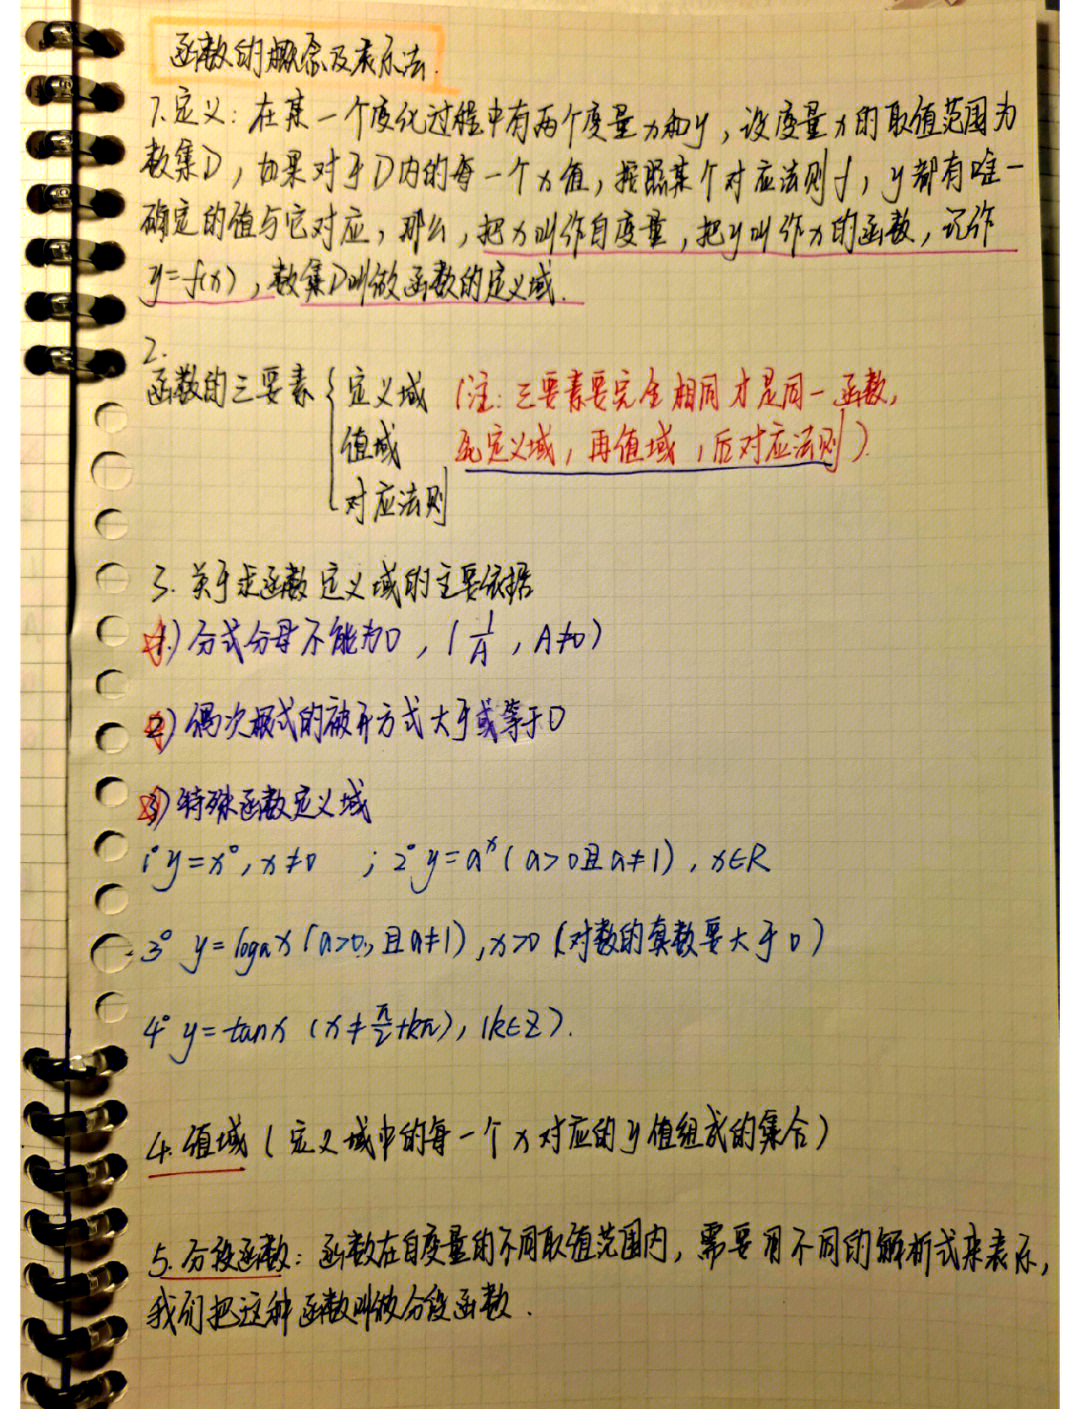 函数的概念及表示法.
1.定义：在某一个变化过程中有两个变量x和y，设变量x的取值范围为
数集D，如果对于D内的每一个x值，按照某个对应法则f，y都有唯一
确定的值与它对应，那么，把x叫作自变量，把y叫作x的函数，记作
y=f(x)，数集D叫做函数的定义域.
2.
函数的三要素{定义域 (注：三要素要完全相同才是同一函数，
值域 先定义域，再值域，后对应法则).
对应法则
3.关于求函数定义域的主要依据
1.)分式分母不能为0，(1/A，A≠0)
2)偶次根式的被开方式大于或等于0
3)特殊函数定义域
1° y=x⁰，x≠0 ；2° y=aˣ(a>0且a≠1)，x∈R
3° y=logₐx(a>0,且a≠1)，x>0(对数的真数要大于0)
4° y=tanx (x≠π/2+kπ)，(k∈Z).
4.值域(定义域中的每一个x对应的y值组成的集合)
5.分段函数：函数在自变量的不同取值范围内，需要用不同的解析式来表示，
我们把这种函数叫做分段函数.